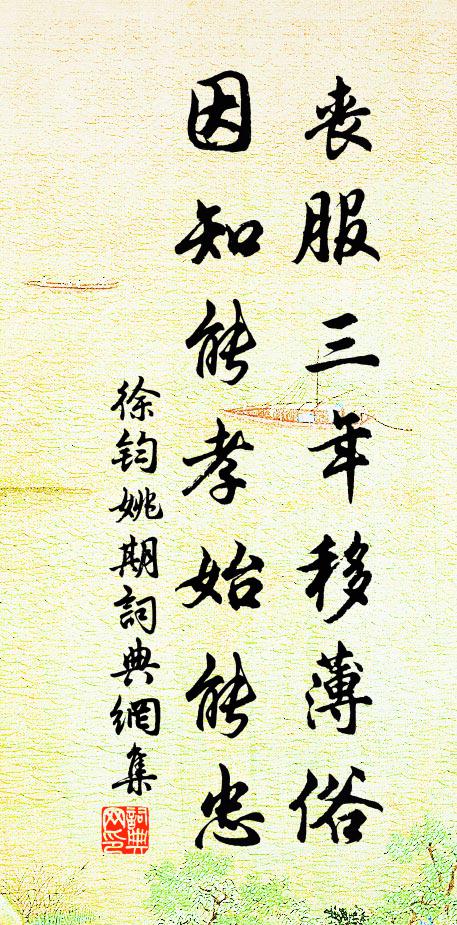 喪服三年移薄俗
因知能孝始能忠
徐鈞姚期詞典網集
詞典網印